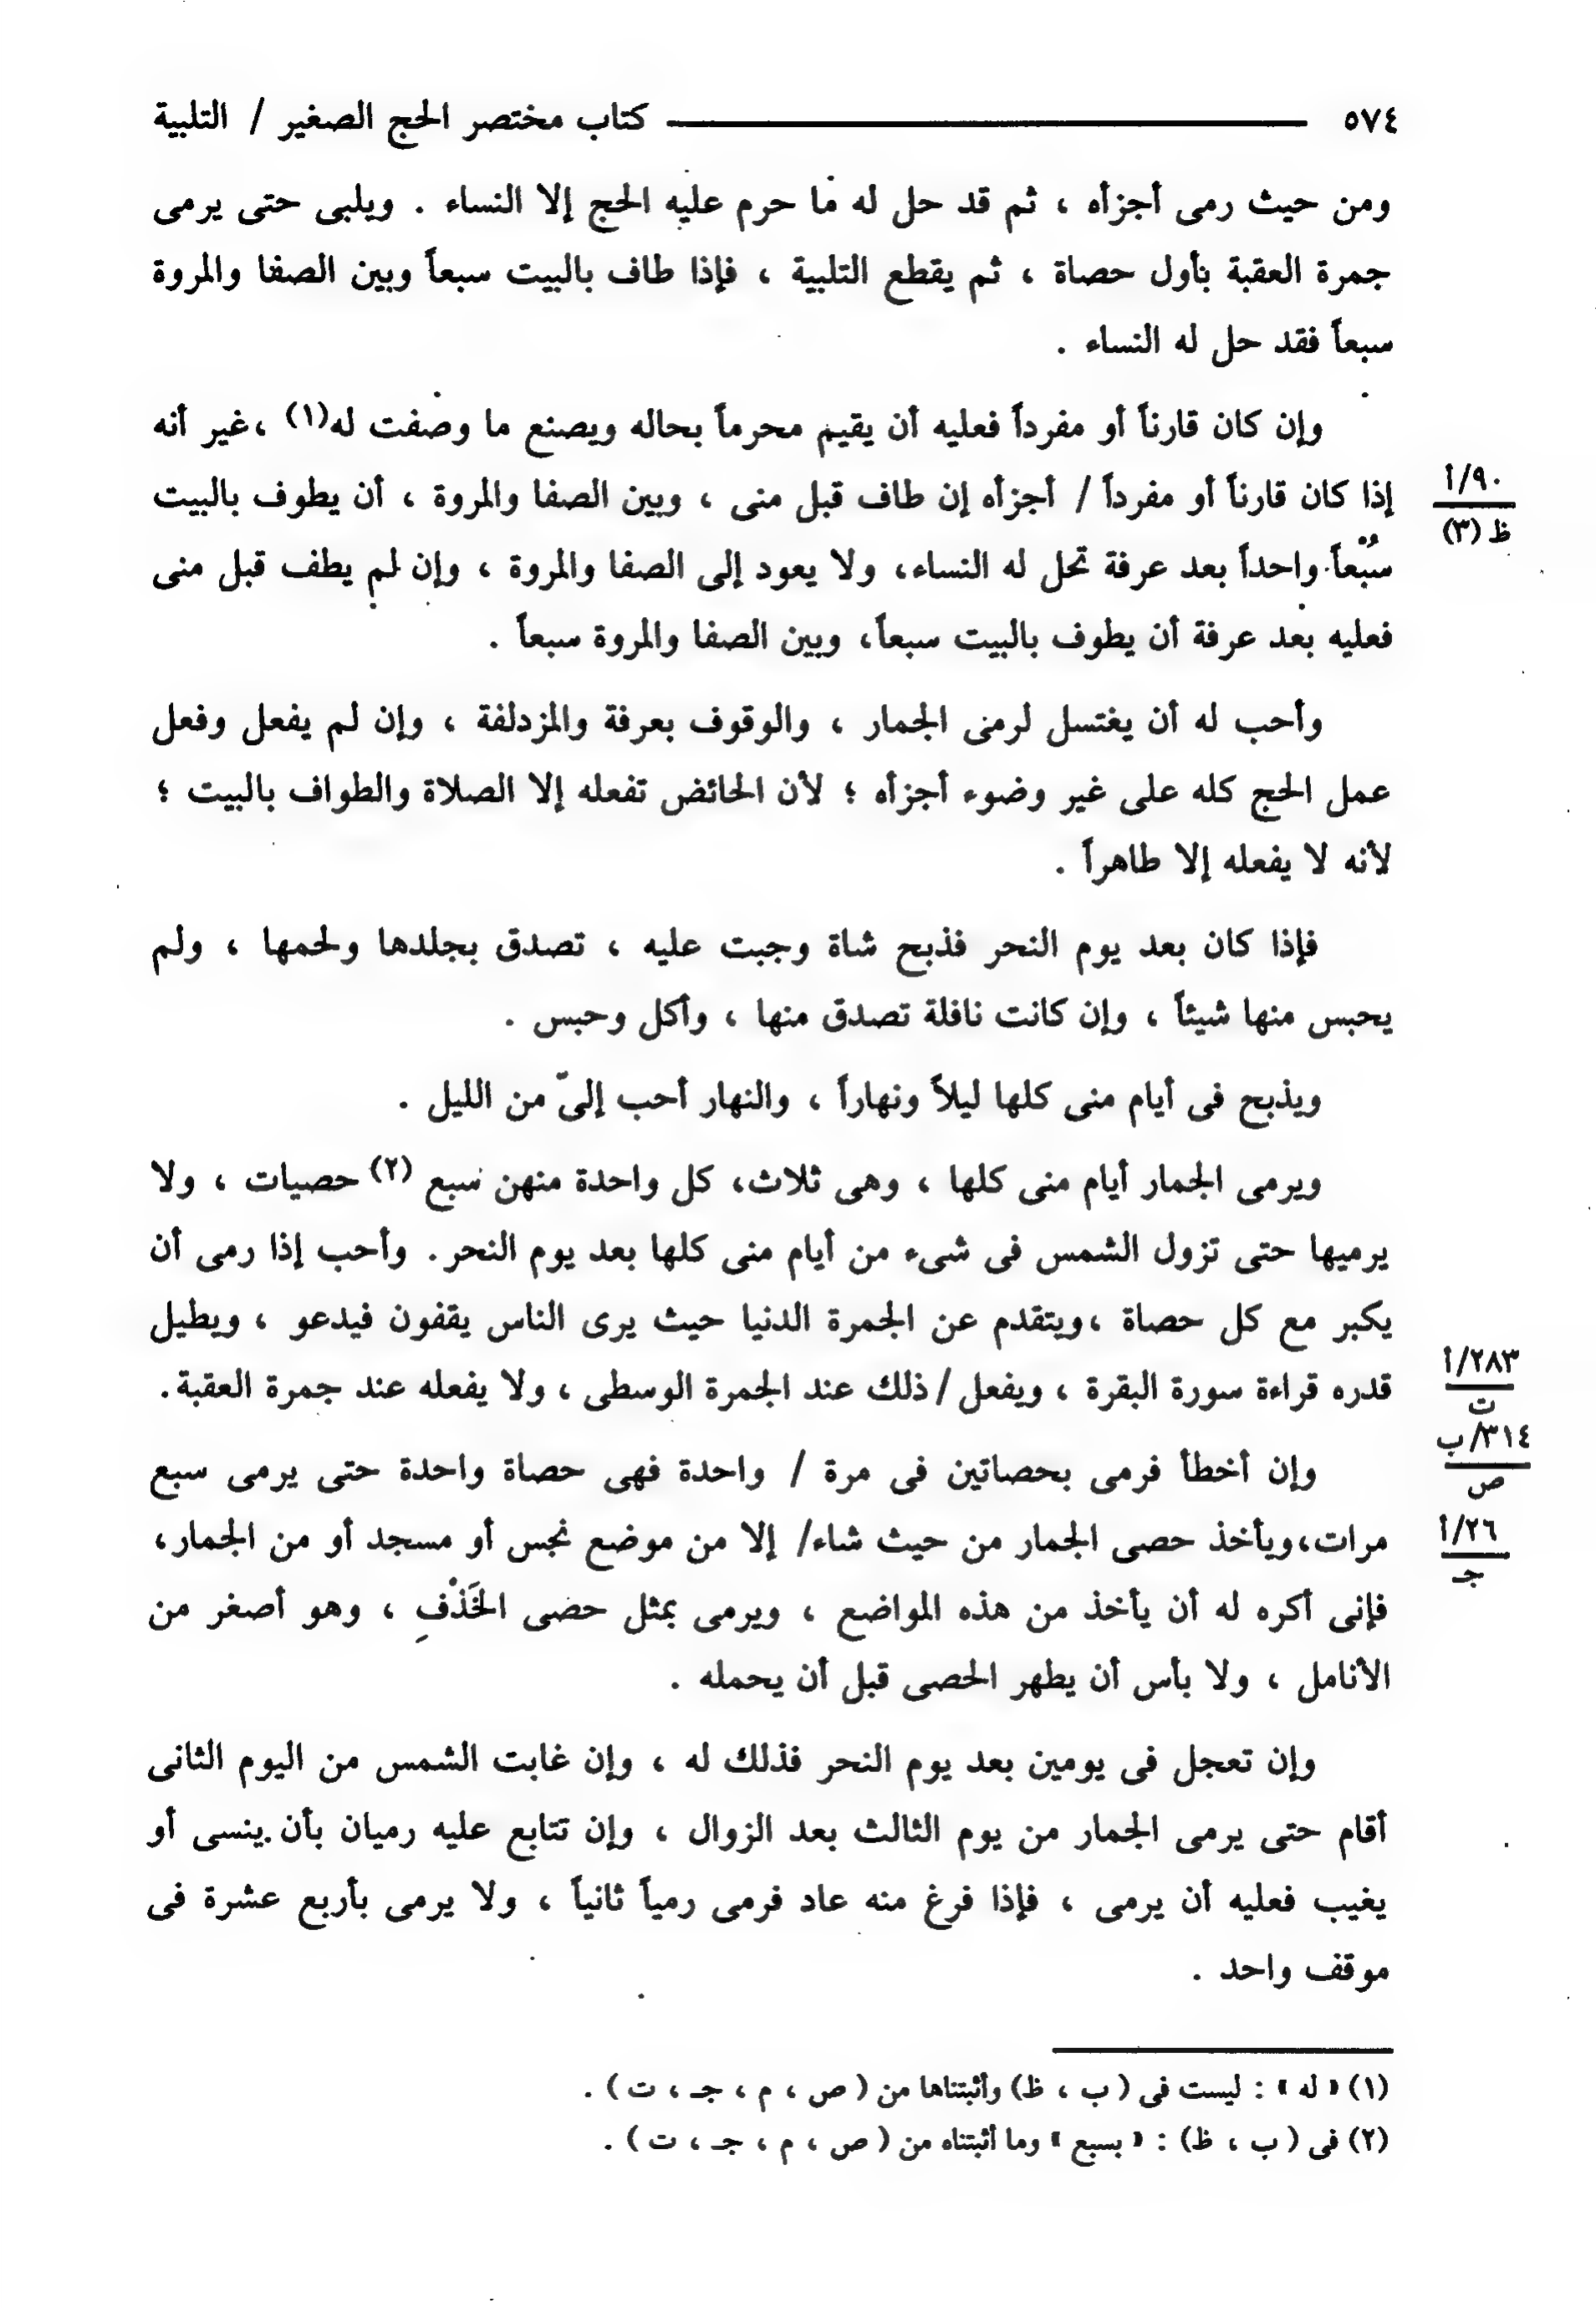 ٥٧٤ كتاب مختصر الحج الصغير / التلبية
ومن حيث رمى أجزأه ، ثم قد حل له ما حرم عليه الحج إلا النساء . ويلبى حتى يرمى
جمرة العقبة بأول حصاة ، ثم يقطع التلبية ، فإذا طاف بالبيت سبعاً وبين الصفا والمروة
سبعاً فقد حل له النساء .
وإن كان قارناً أو مفرداً فعليه أن يقيم محرماً بحاله ويصنع ما وصفت له(١) ،غير أنه
إذا كان قارناً أو مفرداً / أجزأه إن طاف قبل منى ، وبين الصفا والمروة ، أن يطوف بالبيت
٩٠/أ
ظ (٣)
سُبْعاً واحداً بعد عرفة تحل له النساء، ولا يعود إلى الصفا والمروة ، وإن لم يطف قبل منى
فعليه بعد عرفة أن يطوف بالبيت سبعاً، وبين الصفا والمروة سبعاً .
وأحب له أن يغتسل لرمى الجمار ، والوقوف بعرفة والمزدلفة ، وإن لم يفعل وفعل
عمل الحج كله على غير وضوء أجزأه ؛ لأن الحائض تفعله إلا الصلاة والطواف بالبيت ؛
لأنه لا يفعله إلا طاهراً .
فإذا كان بعد يوم النحر فذبح شاة وجبت عليه ، تصدق بجلدها ولحمها ، ولم
يحبس منها شيئاً ، وإن كانت نافلة تصدق منها ، وأكل وحبس .
ويذبح فى أيام منى كلها ليلاً ونهاراً ، والنهار أحب إلىّ من الليل .
ويرمى الجمار أيام منى كلها ، وهى ثلاث، كل واحدة منهن سبع (٢) حصيات ، ولا
يرميها حتى تزول الشمس فى شىء من أيام منى كلها بعد يوم النحر. وأحب إذا رمى أن
يكبر مع كل حصاة ،ويتقدم عن الجمرة الدنيا حيث يرى الناس يقفون فيدعو ، ويطيل
قدره قراءة سورة البقرة ، ويفعل / ذلك عند الجمرة الوسطى ، ولا يفعله عند جمرة العقبة.
٢٨٣/أ
ت
وإن أخطأ فرمى بحصاتين فى مرة / واحدة فهى حصاة واحدة حتى يرمى سبع
٣١٤/ب
ص
مرات،ويأخذ حصى الجمار من حيث شاء/ إلا من موضع نجس أو مسجد أو من الجمار،
٢٦/أ
جـ
فإنى أكره له أن يأخذ من هذه المواضع ، ويرمى بمثل حصى الخَذْفِ ، وهو أصغر من
الأنامل ، ولا بأس أن يطهر الحصى قبل أن يحمله .
وإن تعجل فى يومين بعد يوم النحر فذلك له ، وإن غابت الشمس من اليوم الثانى
أقام حتى يرمى الجمار من يوم الثالث بعد الزوال ، وإن تتابع عليه رميان بأن ينسى أو
يغيب فعليه أن يرمى ، فإذا فرغ منه عاد فرمى رمياً ثانياً ، ولا يرمى بأربع عشرة فى
موقف واحد .
(١) « له » : ليست فى ( ب ، ظ) وأثبتناها من ( ص ، م ، جـ ، ت ) .
(٢) فى ( ب ، ظ) : « بسبع » وما أثبتناه من ( ص ، م ، جـ ، ت ) .